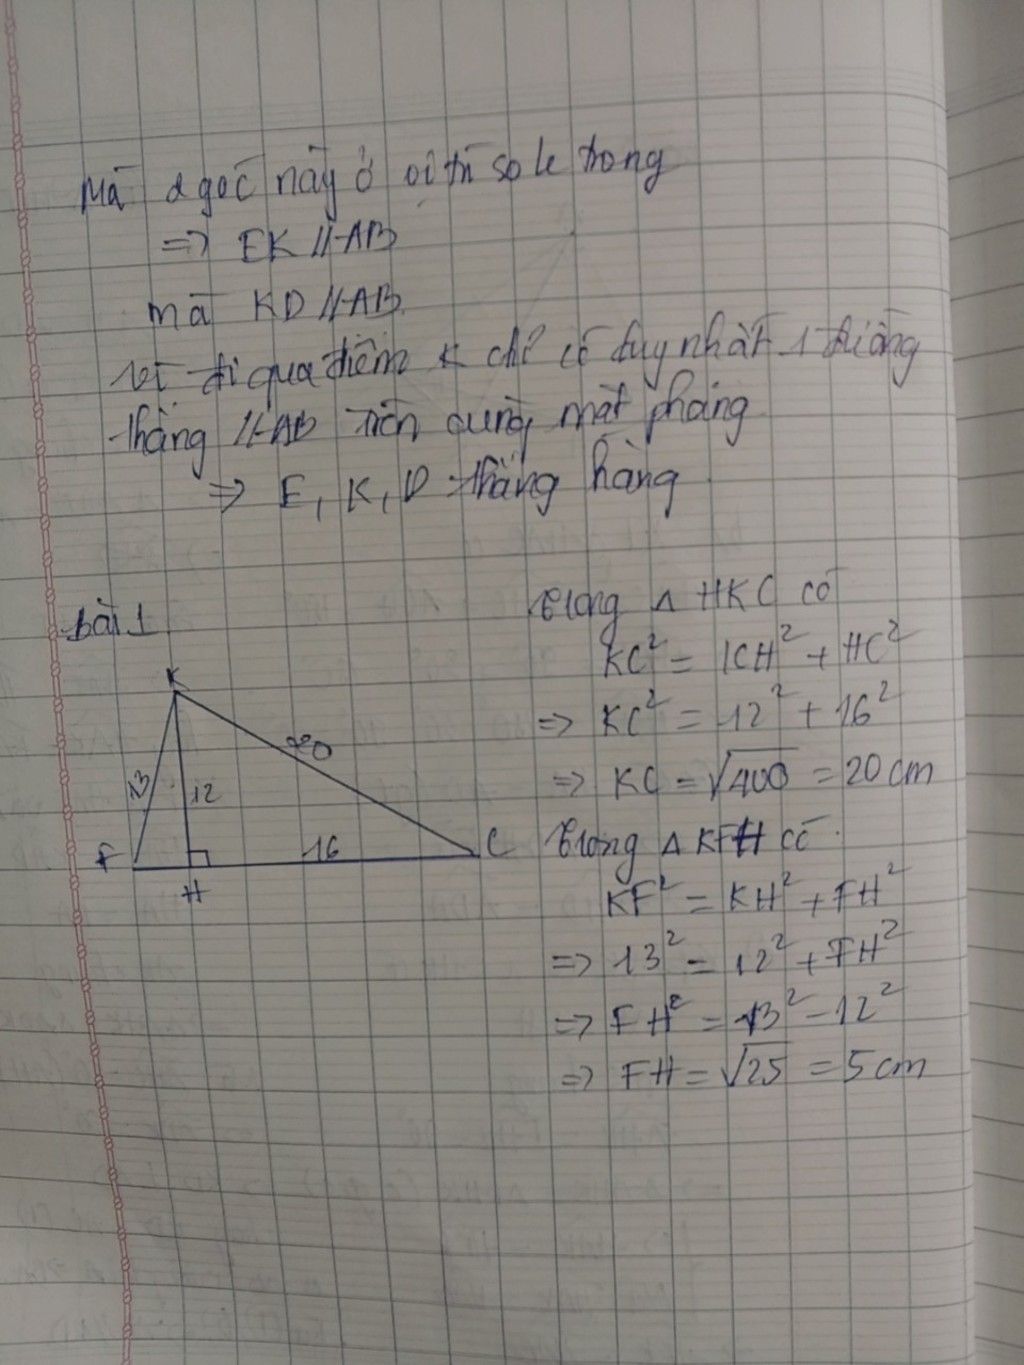 Mà 2 góc này ở vị trí so le trong
=> EK // AB
mà KD // AB
Vì đi qua điểm K chỉ có duy nhất 1 đường
thẳng // AB trên cùng mặt phẳng
=> E, K, D thẳng hàng
bài 1
K
20
13
12
16
F
C
H
Trong Δ HKC có
KC² = KH² + HC²
=> KC² = 12² + 16²
=> KC = √400 = 20 cm
Trong Δ KFH có
KF² = KH² + FH²
=> 13² = 12² + FH²
=> FH² = 13² - 12²
=> FH = √25 = 5 cm